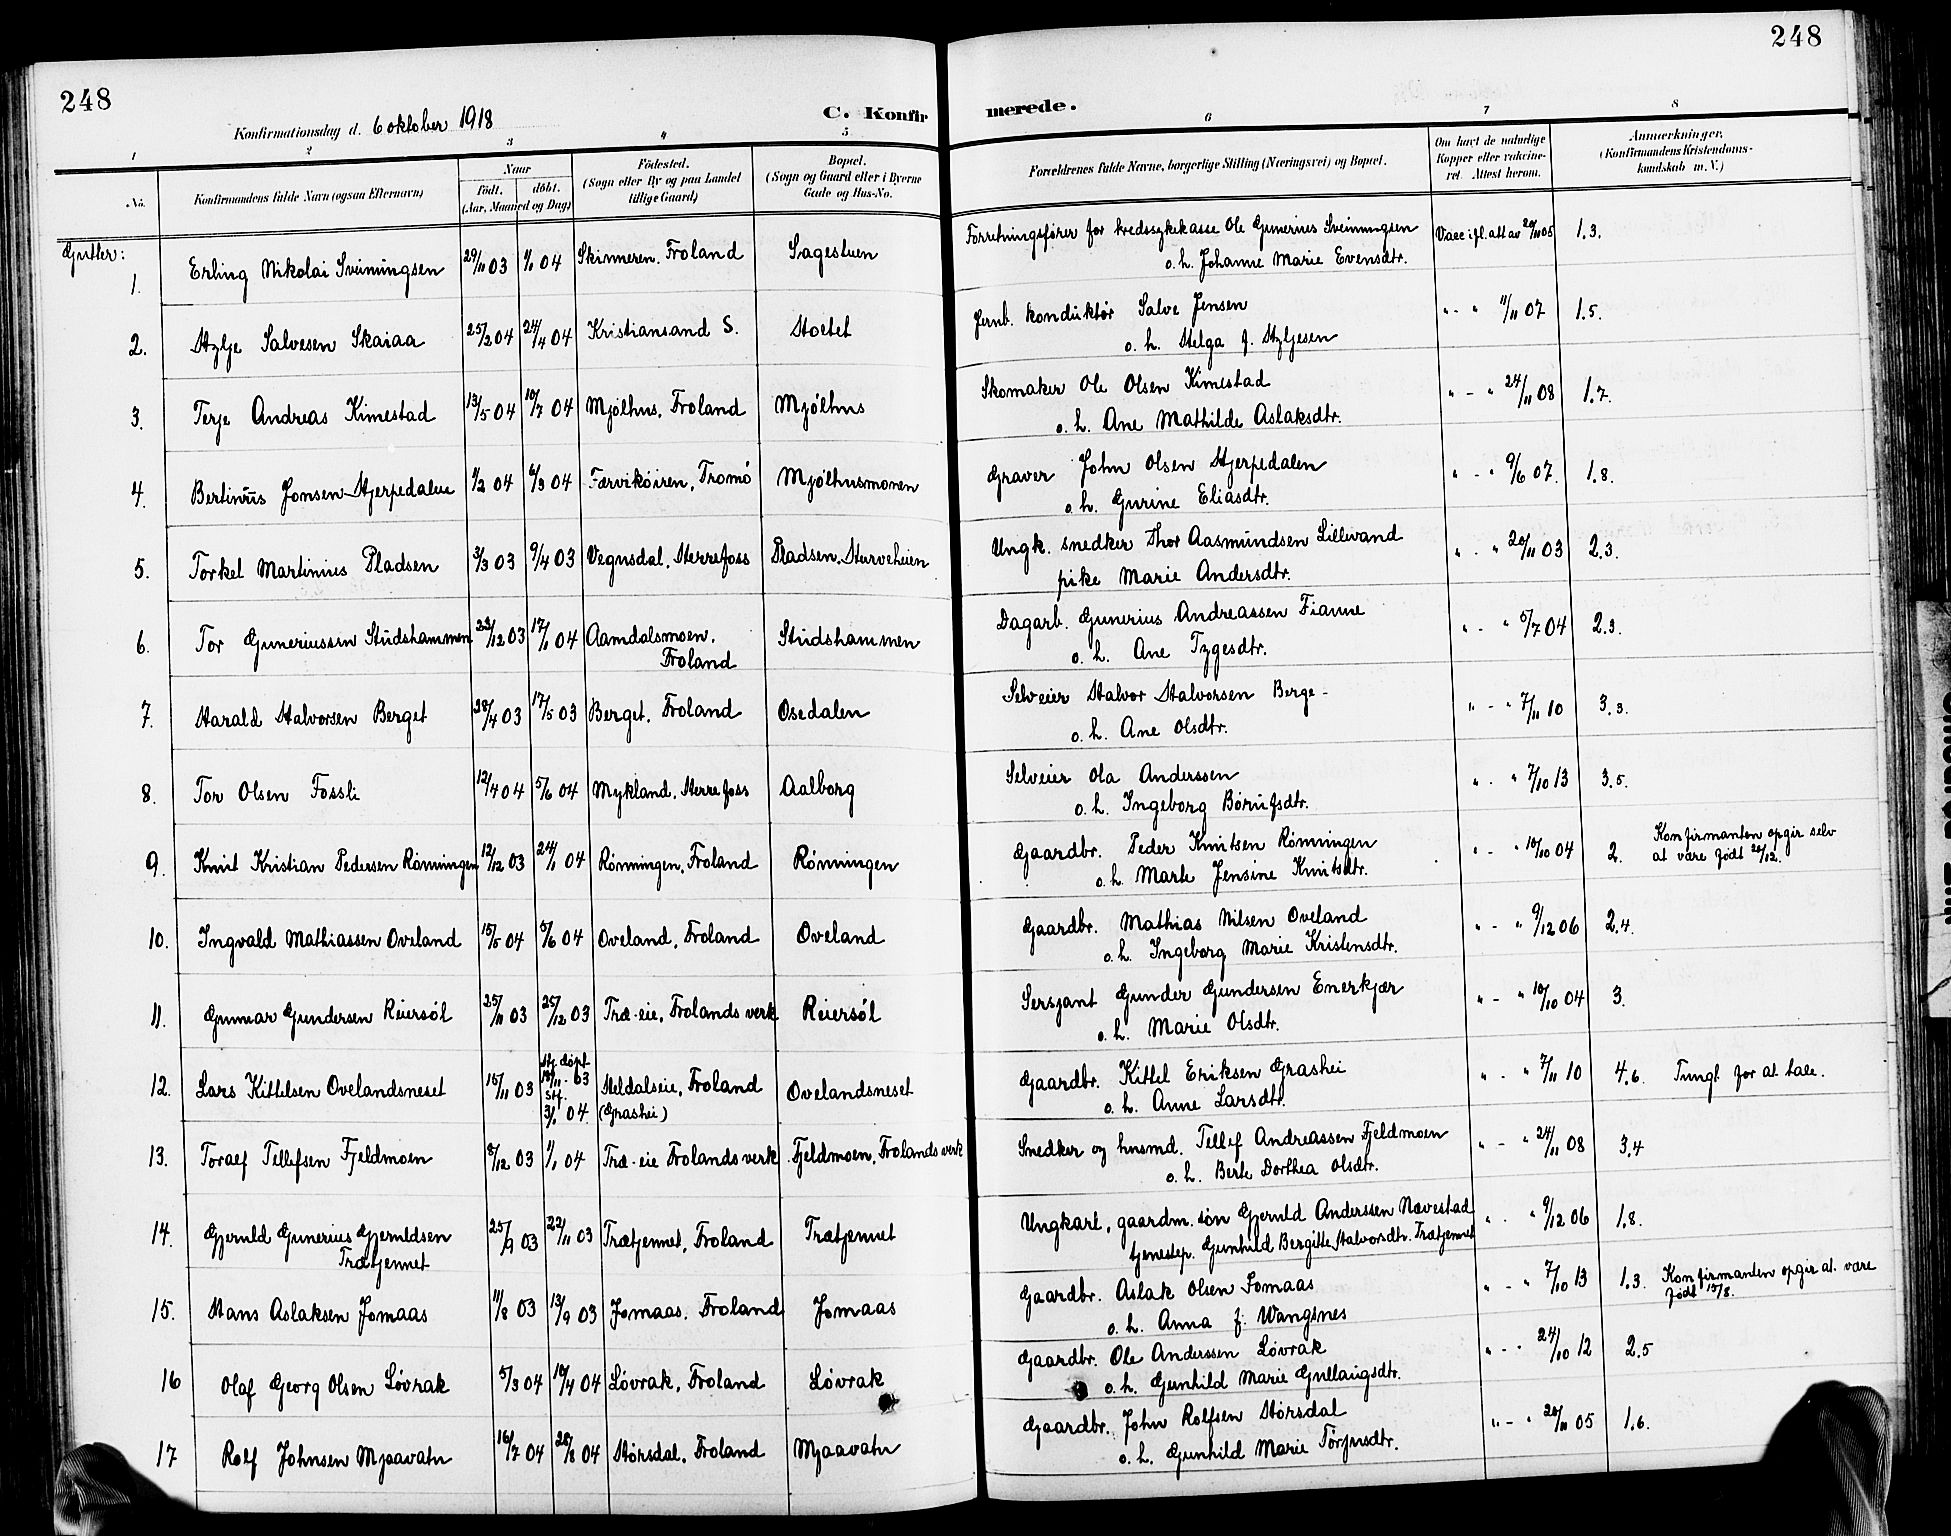 248
248
Konfirmationsdag d. 6 oktober 1918
C. Konfirmerede.
1 2 3 4 5 6 7 8
No.
Konfirmandens fulde Navn (ogsaa Efternavn)
Naar
født. døbt.
(Aar, Maaned og Dag)
Fødested.
(Sogn eller By og paa Landet
tillige Gaard)
Bopæl.
(Sogn og Gaard eller i Byerne
Gade og Hus-No.
Forældrenes fulde Navne, borgerlige Stilling (Næringsvei) og Bopæl.
Om havt de naturlige
Kopper eller vakcine-
ret. Attest herom.
Anmerkninger.
(Konfirmandens Kristendoms-
kundskab m. V.)
Gutter:
1. Erling Nikolai Sveinungsen 29/11 03 1/1 04 Skinneren. Froland Sagestuen Forretningsfører for kredssykekasse Ole Gunerius Sveinungsen Vacc. ifl. att av 20/11 05 1.3.
o. h. Johanne Marie Evensdtr.
2. Hylje Salvesen Skaiaa 25/2 04 24/4 04 Kristiansand S. Stoetet Jernb. konduktør Salve Jensen " - " 11/11 07 1.5.
o. h. Helga f. Hyljesen
3. Terje Andreas Kimestad 13/5 04 10/7 04 Mjølhus, Froland Mjølhus Skomaker Ole Olsen Kimestad " - " 24/11 08 1.7.
o. h. Ane Mathilde Aslaksdtr.
4. Bertinius Jonsen Hjerpedalen 1/2 04 6/3 04 Færvikøiren, Tromø Mjølhusmonen Graver John Olsen Hjerpedalen " - " 9/6 07. 1.8.
o. h. Gurine Eliasdtr.
5. Torkel Martinius Pladsen 3/3 03 9/4 03 Vegusdal, Herrefoss Pladsen, Hurveheien Ungk. snedker Thor Aasmundsen Lillevand " - " 20/11 03 2.3.
pike Marie Andersdtr.
6. Tor Guneriussen Studshammen 23/12 03 17/1 04 Aamdalsmoen, Studshammen Dagarb. Gunerius Andreassen Fianne " - " 5/7 04 2.3.
Froland o. h. Ane Tygesdtr.
7. Harald Halvorsen Berget 28/4 03 17/5 03 Berget, Froland Osedalen Selveier Halvor Halvorsen Berge - " - " 7/11 10 3.3.
o. h. Ane Olsdtr.
8. Tor Olsen Fossli 12/4 04 5/6 04 Mykland, Herrefoss Aalborg Selveier Ola Anderssen " - " 7/10 13 3.5.
o. h. Ingeborg Børufsdtr.
9. Knut Kristian Pedersen Rønningen 12/12 03 24/1 04 Rønningen, Froland Rønningen Gaardbr. Peder Knutsen Rønningen " - " 10/10 04 2. Konfirmanten opgir selv
at være født 20/12.
o. h. Marte Jensine Knutsdtr.
10. Ingvald Mathiassen Oveland 15/5 04 5/6 04 Oveland, Froland Oveland Gaardbr. Mathias Nilsen Oveland " - " 9/12 06 2.4.
o. h. Ingeborg Marie Kristensdtr.
11. Gunnar Gundersen Reiersøl 25/11 03 25/12 03 Træ-eie, Frolands verk Reiersøl Sersjant Gunder Gundersen Enerkjær " - " 10/10 04 3.
o. h. Marie Olsdtr.
12. Lars Kittelsen Ovelandsneset 15/11 03 Hj. døpt 18/11 - 03 Stf. 3/1 04. Heldalseie, Froland Ovelandsneset Gaardbr. Kittel Eriksen Grashei " - " 7/11 10 4.6. Tungt for at tale.
(Grashei) o. h. Anne Larsdtr.
13. Toraef Tellefsen Fjeldmoen 8/12 03 1/1 04 Træ-eie Frolands verk Fjeldmoen, Frolands verk Snedker og husmd. Tellef Andreassen Fjeldmoen " - " 24/11 08 3.4
o. h. Berte Dorthea Olsdtr.
14. Gjeruld Gunerius Gjeruldsen 25/9 03 22/11 03 Trætjennet, Froland Trætjennet Ungkarl, gaardm. søn Gjeruld Anderssen Nævestad " - " 9/12 06 1.8.
Trætjennet tjenestep. Gunhild Bergitte Halvorsdtr. Trætjennet
15. Hans Aslaksen Jomaas 11/8 03 13/9 03 Jomaas. Froland Jomaas Gaardbr. Aslak Olsen Jomaas " - " 7/10 13 1.3. Konfirmanten opgir at være
født 15/8.
o. h. Anna f. Wangsnes
16 Olaf Georg Olsen Løvrak 5/3 04 10/4 04 Løvrak, Froland Løvrak Gaardbr. Ole Anderssen Løvrak " - " 24/10 12 2.5
o. h. Gunhild Marie Gullaugsdtr.
17 Rolf Johnsen Mjaavatn 16/7 04 28/8 04 Hørsdal, Froland Mjaavatn Gaardbr. John Rolfsen Hørsdal " - " 20/11 05 1.6.
o. h. Gunhild Marie Tørjusdtr.